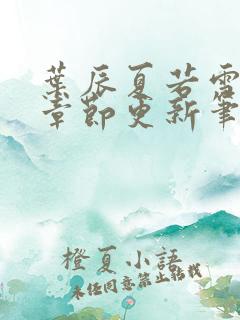 葉辰夏若雪
章節更新筆
橙夏小語
未経同意禁止轉載